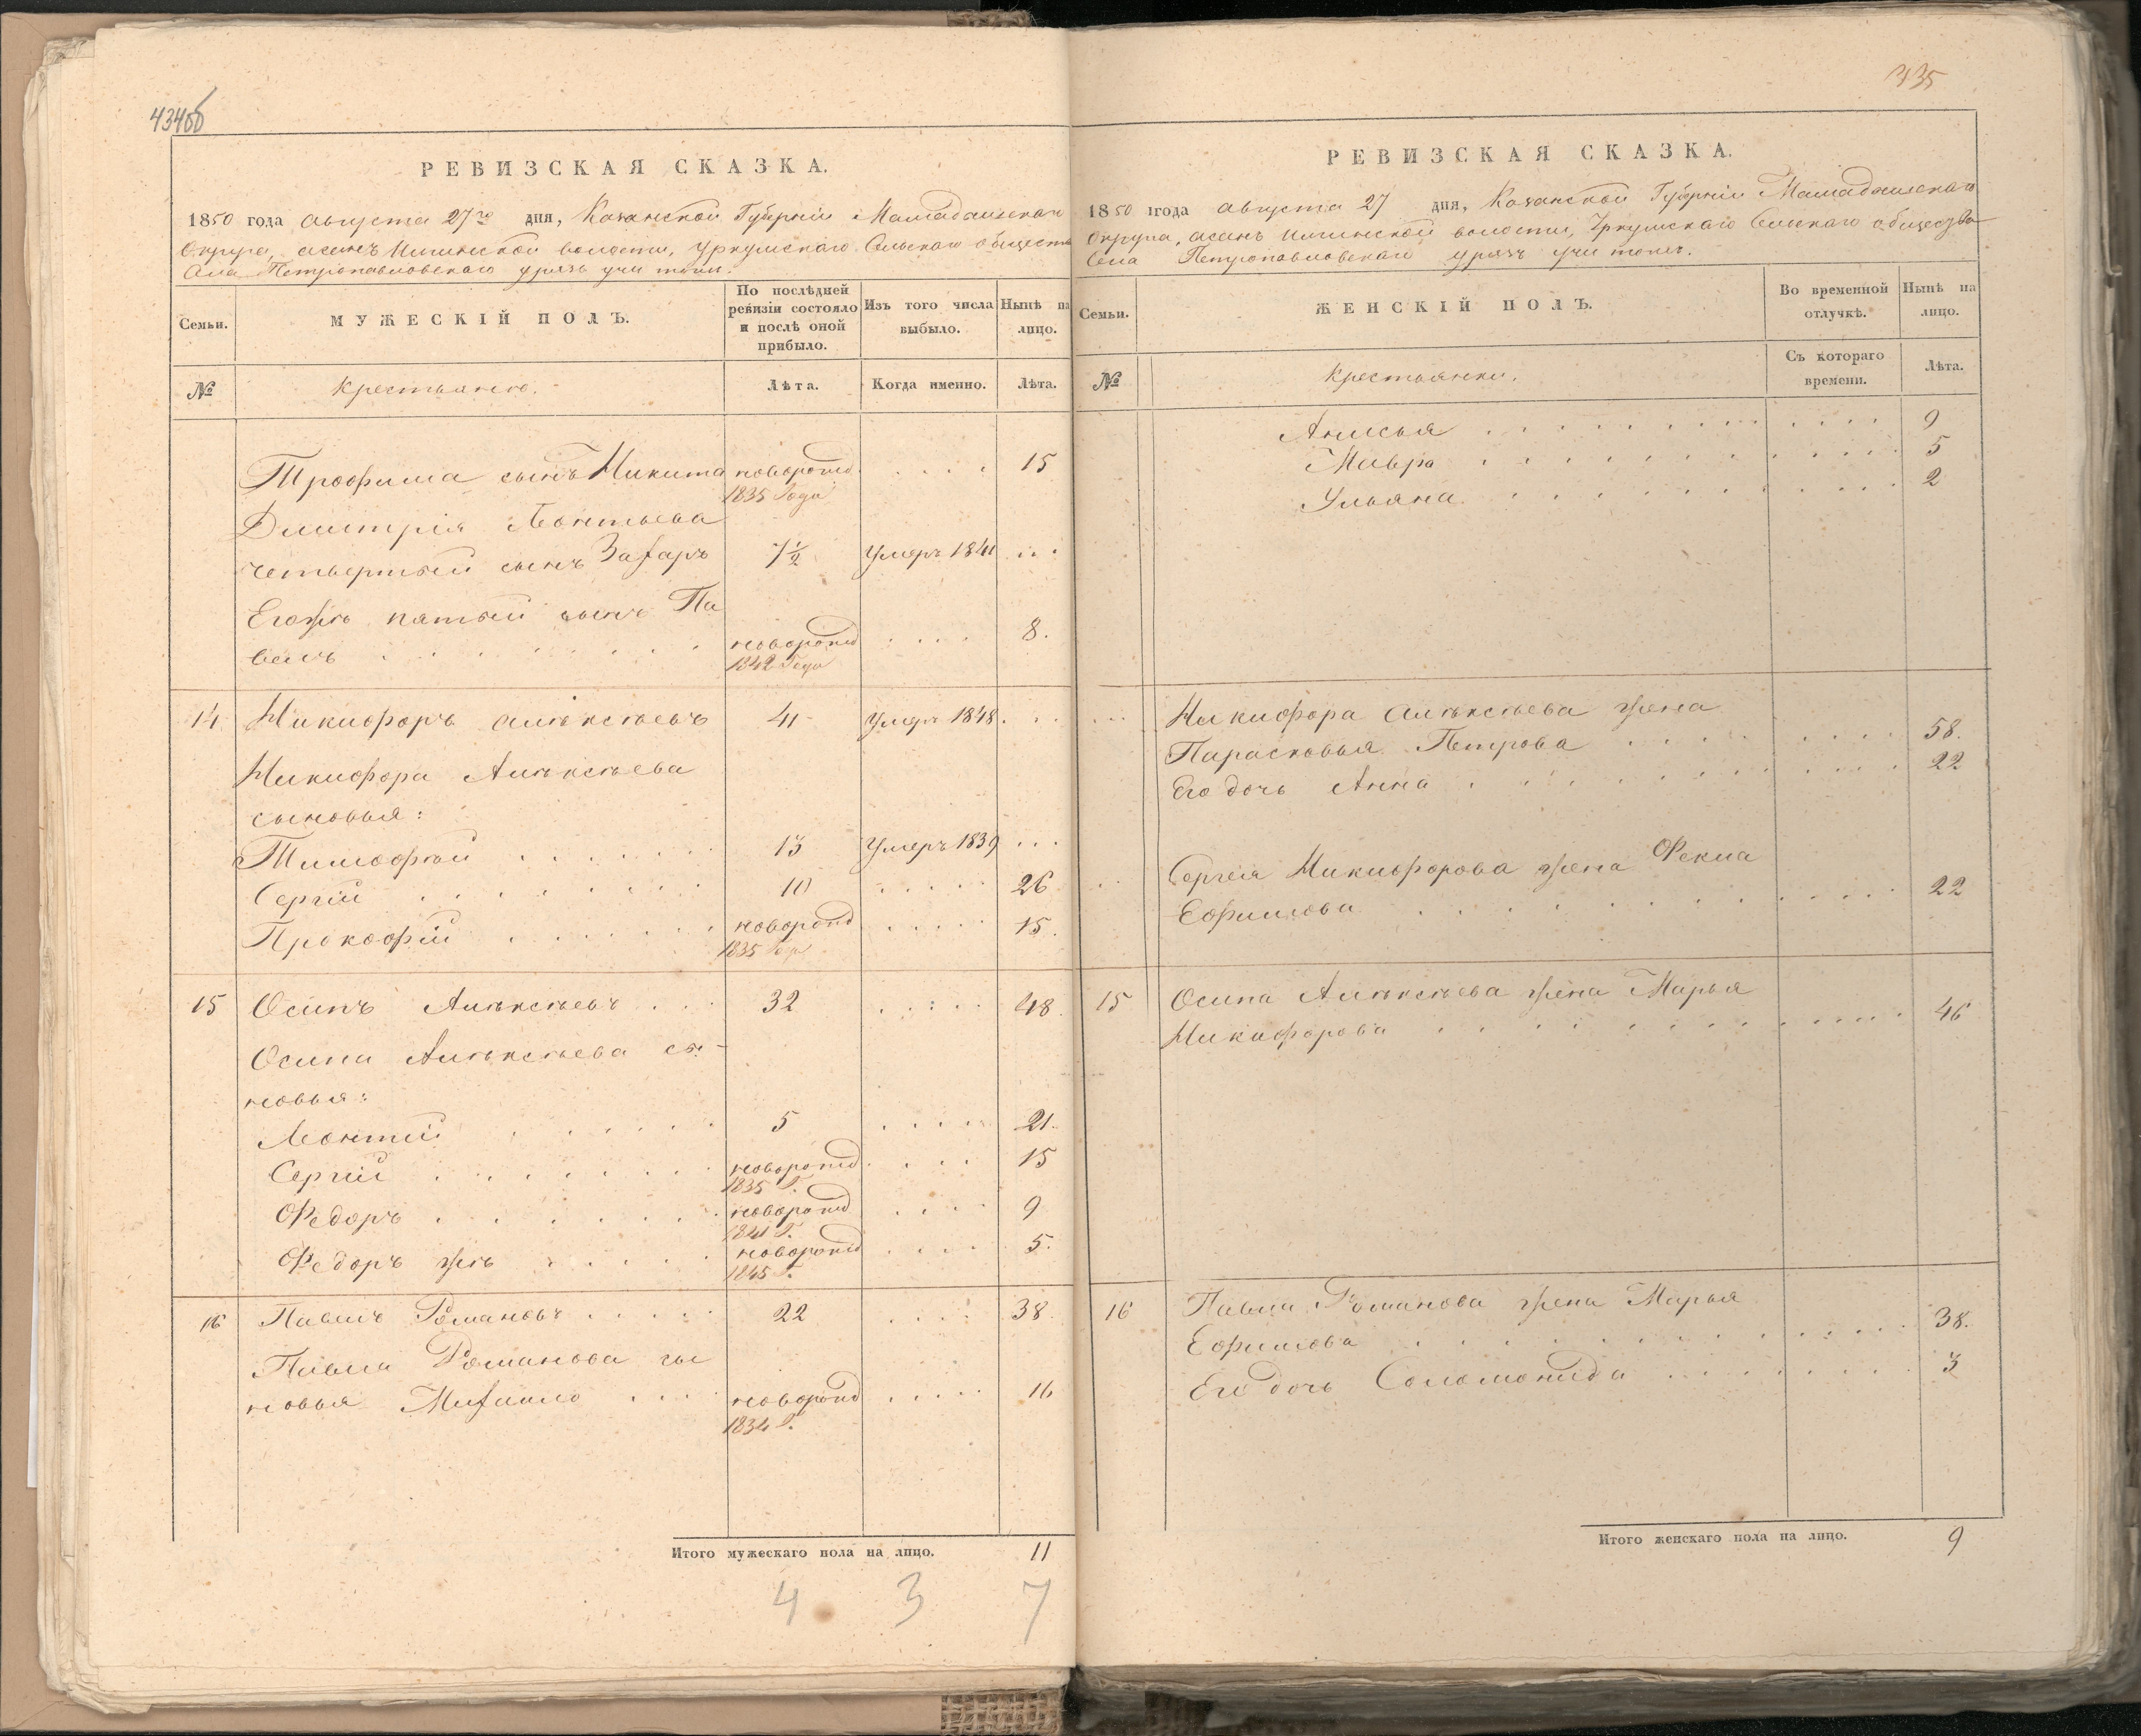 434об
РЕВИЗСКАЯ СКАЗКА.
1850 года августа 27го дня, Казанской Губерніи Мамадышскаго
Округа, асанъ Волости, Уркушскаго Сельскаго общества
Села Петропавловскаго урясь учи тожъ.
Семьи.
МУЖЕСКІЙ ПОЛЪ.
По послѣдней ревизіи состояло и послѣ оной прибыло.
Изъ того числа выбыло.
Нынѣ на лицо.
№
Крестьяне.
Лѣта.
Когда именно.
Лѣта.
Трофима сынъ Никита новорожд. . . . . 15
1835 Года
Дмитрія Леонтьева
четвертый сынъ Захаръ 7½ Умеръ 1841 . . .
Егожъ пятый сынъ Па
велъ . . . . . . . . новорожд . . . . 8.
1842 Года
14. Никифоръ Алѣксѣевъ 41 Умеръ 1848. . .
Никифора Алѣксѣева
сыновья:
Тимофѣй . . . . . . 13 Умеръ 1839 . . .
Сергій . . . . . . . 10 . . . . . 26
Прокофій . . . . . . новорожд . . . . 15.
1835 Года
15 Осипъ Алѣксѣевъ . . . 32 . . . . . 48.
Осипа Алѣксѣева сы-
новья:
Леонтій . . . . . . 5 . . . . . 21.
Сергій . . . . . . . новорожд. . . . 15
1835 Г.
Федоръ . . . . . . . новорожд . . . . 9
1841 Г.
Федоръ жъ . . . . . новорожд . . . . 5.
1845 Г.
16 Павелъ Романовъ . . . . . 22 . . . . 38.
Павла Романова сы
новья Михаило . . . новорожд . . . . . 16
1834 Г.
Итого мужескаго пола на лицо. 11
4 3 7
435
РЕВИЗСКАЯ СКАЗКА.
1850 года августа 27 дня, Казанской Губерніи Мамадышскаго
Округа, асанъ волости, Уркушскаго Сельскаго общества
Села Петропавловскаго урясь учи тожъ.
Семьи.
ЖЕНСКІЙ ПОЛЪ.
Во временной отлучкѣ.
Нынѣ на лицо.
№
Крестьянки.
Съ котораго времени.
Лѣта.
Анисья . . . . . . . . . . . . . 9
Мавра . . . . . . . . . . . . . 5
Ульяна . . . . . . . . . . . . . 2
Никифора Алѣксѣева жена
Парасковья Петрова . . . . . . . . 58.
Его дочь Анна . . . . . . . . . . . 22
Сергія Никифорова жена Фекла
Ефимова . . . . . . . . . . . . . 22
15 Осипа Алѣксѣева жена Марья
Никифорова . . . . . . . . . . . . 46
16 Павла Романова жена Марья
Ефимова . . . . . . . . . . . . . 38.
Его дочь Соломонида . . . . . . . . 3
Итого женскаго пола на лицо. 9